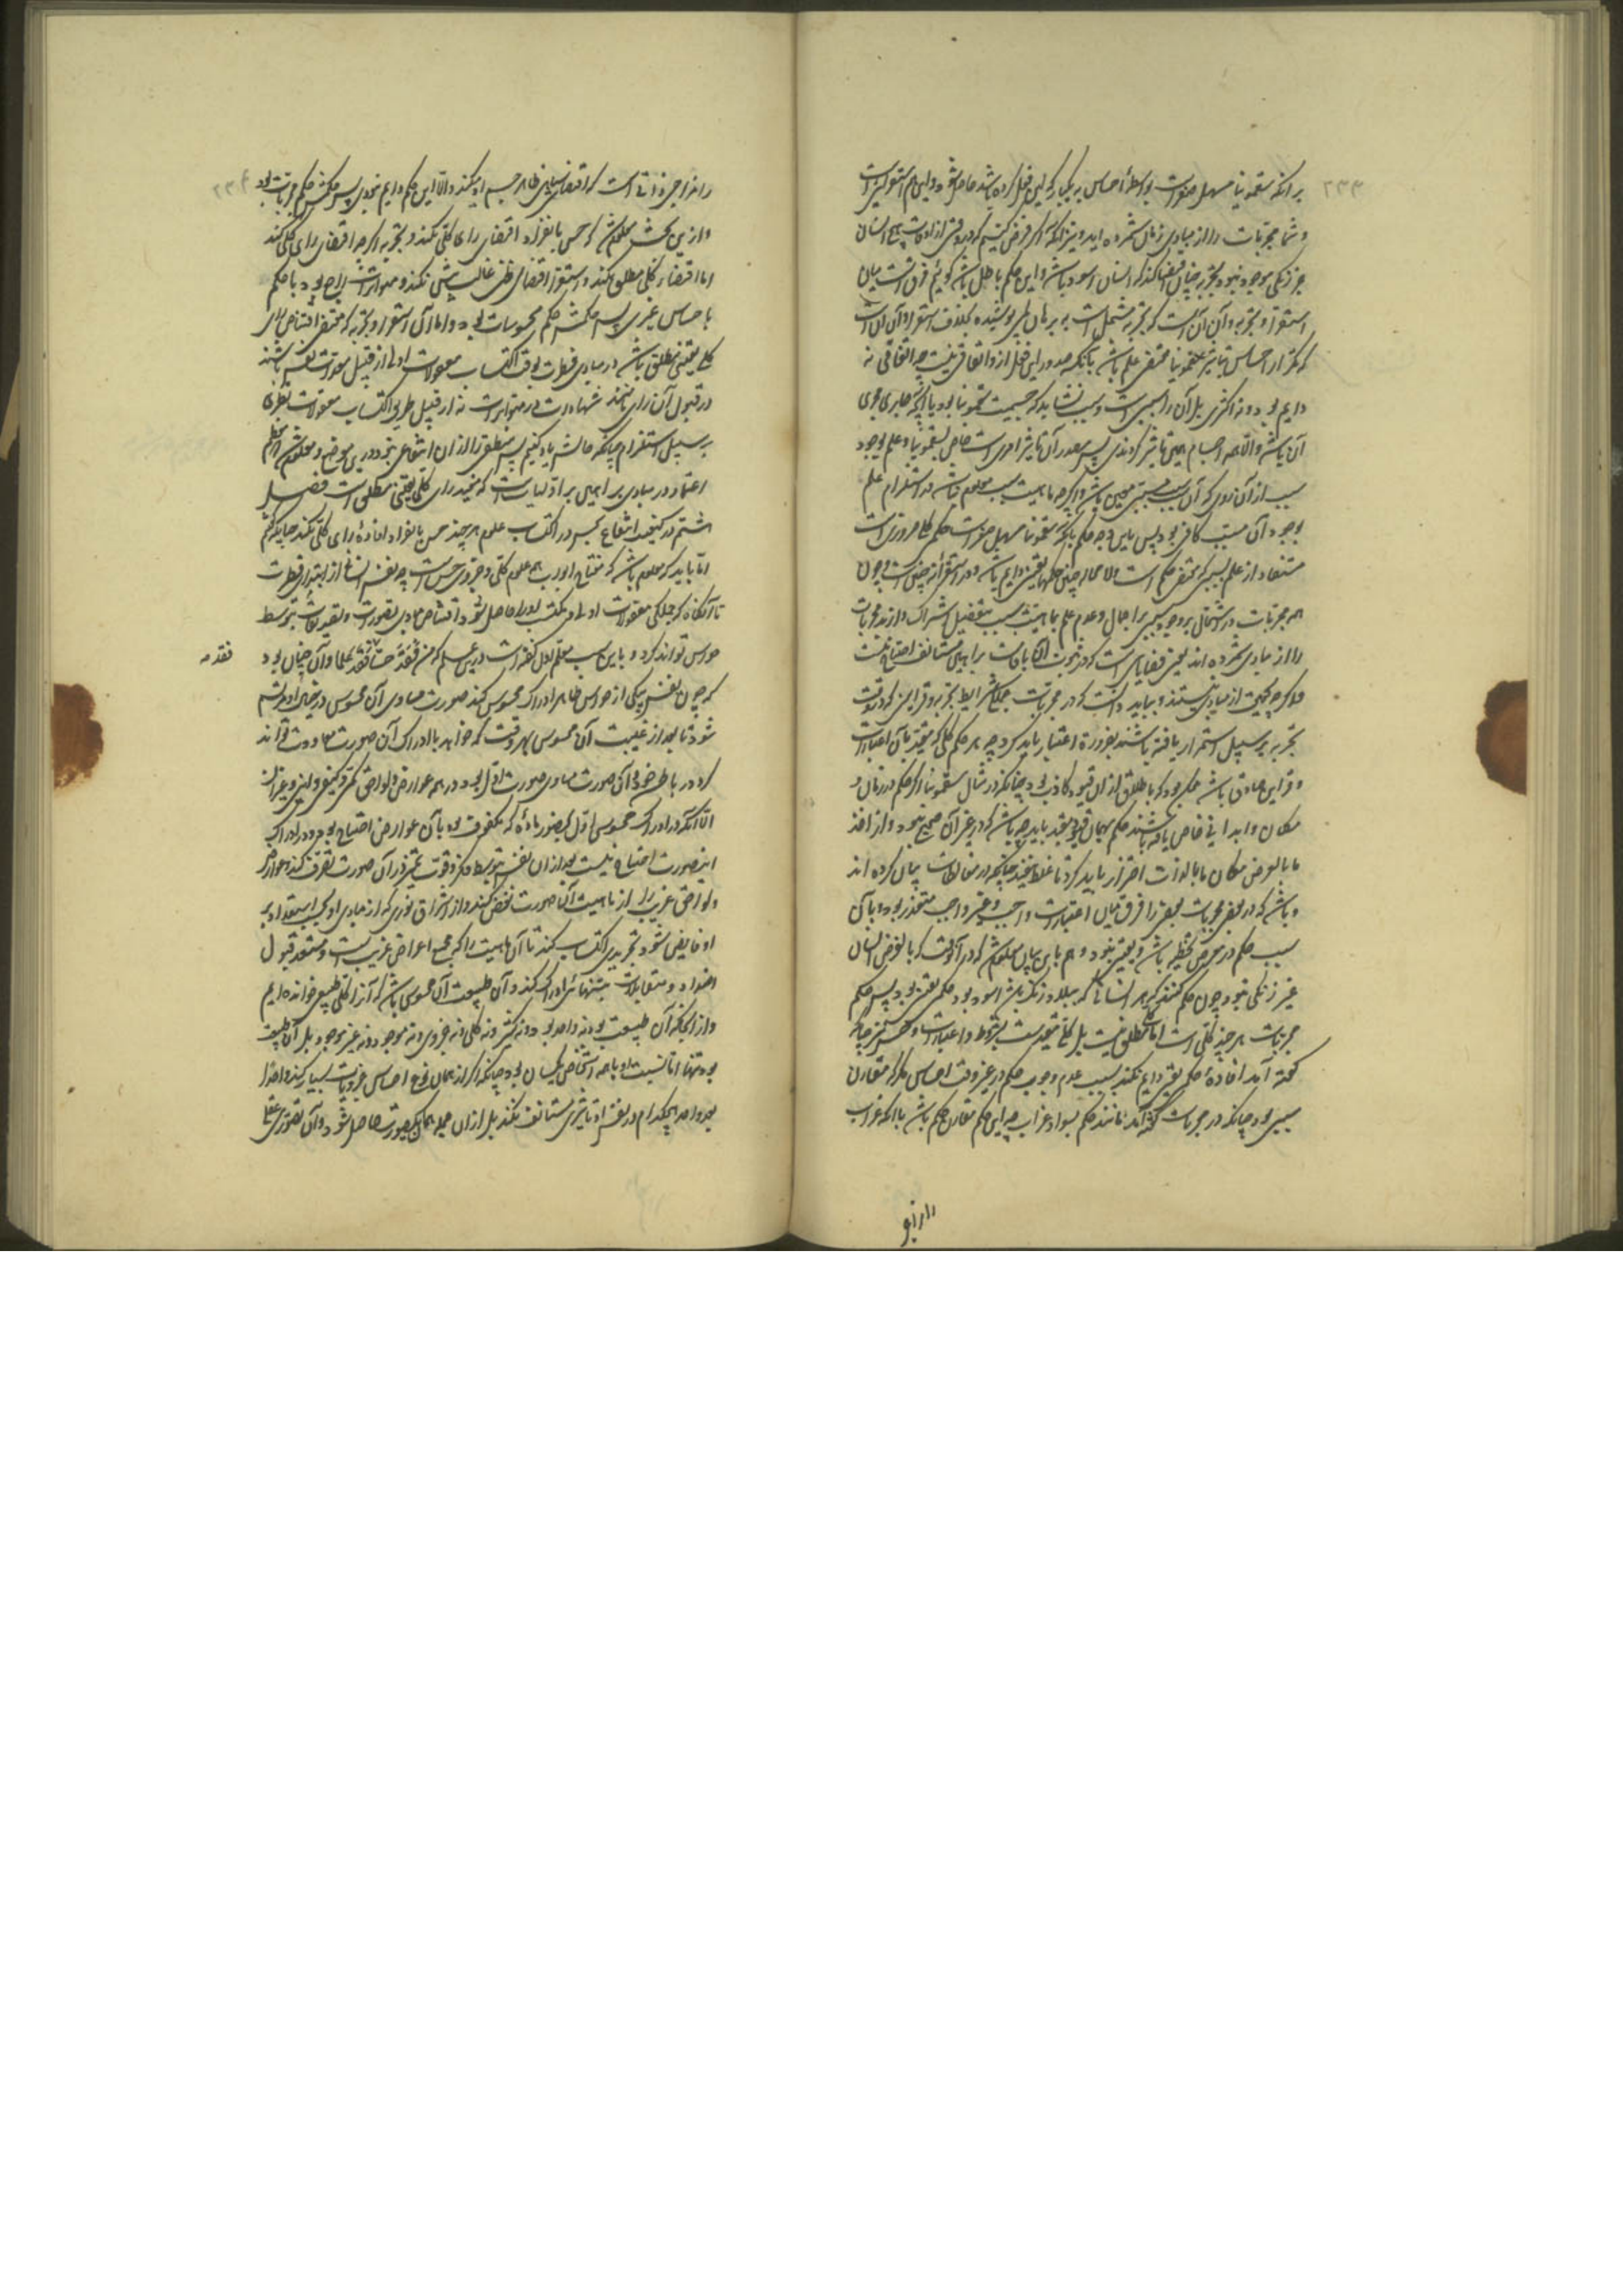 بر آنکه سقمونیا مسهل صفراست بواسطهٔ احساس به یکبار که این فعل کرده باشد حاصل شود و این هم استقراست
و شما مجربات را از مبادی برهان شمرده‌اید و نیز آنکه اگر فرض کنیم که در وقتی از اوقات هیچ انسان
جز زنگی موجود نبود تجربه چنان اقتضا کند که انسان اسود باشد و این حکم باطل باشد گوئیم فرق است میان
استقرا و تجربه و آن آنست که تجربه مشتمل است بر برهانی پوشیده بخلاف استقرا و آن آن است
که تکرار احساس بتأثیر سقمونیا مقتضی علم باشد بآنکه صدور این فعل از او اتفاقی نیست چه اتفاقی نه
دایم بود و نه اکثری بل آن را سببی است و سبب نشاید که جسمیت سقمونیا بود یا آنچه جاری مجری
آن باشد و الا همه اجسام همین تأثیر کردندی پس مصدر آن تأثیر امری است خاص بسقمونیا و علم بوجود
سبب از آن روی که آن سبب مسببی معین باشد و اگر چه ماهیت سبب معلوم نباشد در استلزام علم
بوجود آن مسبب کافی بود پس باین وجه حکم بآنکه سقمونیا مسهل صفراست حکمی کلی ضروری است
مستفاد از علم بسببی که مقتضی حکم است و لا محاله چنین حکمها یقینی و دایم باشد و در استقرا نه چنین است و چون
همه مجربات در اشتمال بر وجود سببی بر اجمال و عدم علم بماهیت سبب بتفصیل اشتراک دارند مجربات
را از مبادی شمرده‌اند یعنی قضایائی است که در ثبوت آن باقامت براهین مستأنف احتیاج نیست
تجربه بر سبیل استمرار یافته باشند بضرورة اعتبار باید کرد چه هر حکم کلی که مقید بآن اعتبارات
و قراین صادق باشد ممکن بود که باطلاق از آن قیود کاذب بود چنانکه در مثال سقمونیا اگر حکم در زمان و
مکان و ابدانی خاص یافته باشند حکم بهمان قیود مقید باید چه باشد که در غیر آن صحیح نبود و از اخذ
ما بالعرض مکان ما بالذات احتراز باید کرد تا غلط نیفتد چنانکه در مغالطات بیان کرده‌اند
و باشد که در بعضی مجربات بعضی را فرق میان اعتبارات واجب و غیر واجب متعذر بود و بآن
سبب حکم در معرض تخطیه باشد و یقینی نبود و هم باین بیان معلوم شد که در آن وقت که بالفرض انسان
غیر زنگی نبود چون حکم کنند که هر انسانی که ببلاد زنگ باشد اسود بود حکمی یقینی بود پس حکم
مجربات هر چند کلی است اما کلی مطلق نیست بل کلی مقید است بشروط و اعتبارات و حس تنها چنانکه
گفته آمد افادهٔ حکم یقینی دایم نکند بسبب عدم وجوب حکم در غیر وقت احساس مگر که مقارن
سببی بود چنانکه در مجربات گفته آمد مانند حکم بسواد غراب چه این حکم مقارن حکم باشد بآنکه غراب
را مزاجی ذاتی است که اقتضاء سیاهی ظاهر جسم او میکند و الا این حکم دایم نبودی پس حکمش حکم مجربات بود
و ازین بحث معلوم شد که حس بانفراد اقتضای رای کلی نکند و تجربه اگر چه اقتضای رای کلی کند
اما اقتضاء کلی مطلق نکند و استقرا اقتضای ظنی غالب بیش نکند و متواترات راجع بود با حکم
باحساس غیری پس حکمش حکم محسوسات بود و اما آن استقرا و تجربه که مقتضی اقتناص رای
کلی یقینی مطلق باشد در مبادی فطرت بوقت اکتساب معقولات اولی از قبیل معدات نفس باشند
در قبول آن رای نه مانند شهادت در متواترات نه از قبیل طریق اکتساب معقولات نظری
بر سبیل استلزام چنانکه حالش یاد کنیم پس منطقی را از آن انتفاعی نبود درین موضع و معلوم شد که اعظم
اعتماد در مبادی براهین بر اولیات است که مفید رای کلی یقینی مطلق است فصل
هشتم در کیفیت انتفاع بحس در اکتساب علوم هر چند حس بانفراد افادهٔ رای کلی نکند چنانکه گفتیم
اما باید که معلوم باشد که مفتاح ابواب همه علوم کلی و جزوی حس است چه نفس انسانی از ابتداء فطرت
تا آنگاه که جملگی معقولات اولی و مکتسب او را حاصل شود اقتناص مبادی تصورات و تصدیقات بتوسط
حواس تواند کرد و باین سبب معلم اول گفته است درین علم که من فقد حسا فقد علما و آن چنان بود
فقد مه
که چون نفس بیکی از حواس ظاهر ادراک محسوس کند صورت مساوی آن محسوس در خیال او مرتسم
شود تا بعد از غیبت آن محسوس بهر وقت که خواهد با ادراک آن صورت معاودت تواند
کرد در باطن خود و آن صورت مساوی صورت اول بود در همه عوارض و لواحق کمی و کیفی و اینی و غیر آن
الا آنکه در ادراک محسوس اول بحضور ماده که مکنوف بود بآن عوارض احتیاج بود و در ادراک
این صورت احتیاج نیست بعد از آن نفس بتوسط فکر و قوت تمیز در آن صورت تصرف کند و عوارض
و لواحق غریب را از ماهیت آن صورت نفض کند و از اشراق نوری که از مبادی او بحسب استعداد بر
او فایض شود تجریدی اکتساب کند تا آن ماهیت را که مجمع اعراض غریب است و مستعد قبول
اضداد و متقابلات بتنهائی ادراک کند و آن طبیعت آن محسوس باشد که آن را کلی طبیعی خوانده‌ایم
و از آنجا که آن طبیعت بود نه واحد بود و نه کثیر و نه کلی و نه جزوی و نه موجود و نه غیر موجود بل آن طبیعت
بود تنها اما نسبت او با همه اشخاص یکسان بود چنانکه اگر از همان نوع احساس جزویات بسیار کند واحدا
بعد واحد هیچکدام در نفس او تأثیری مستأنف نکند بل از آن جمله همان یک صورت حاصل شود و آن تصوری عقلی